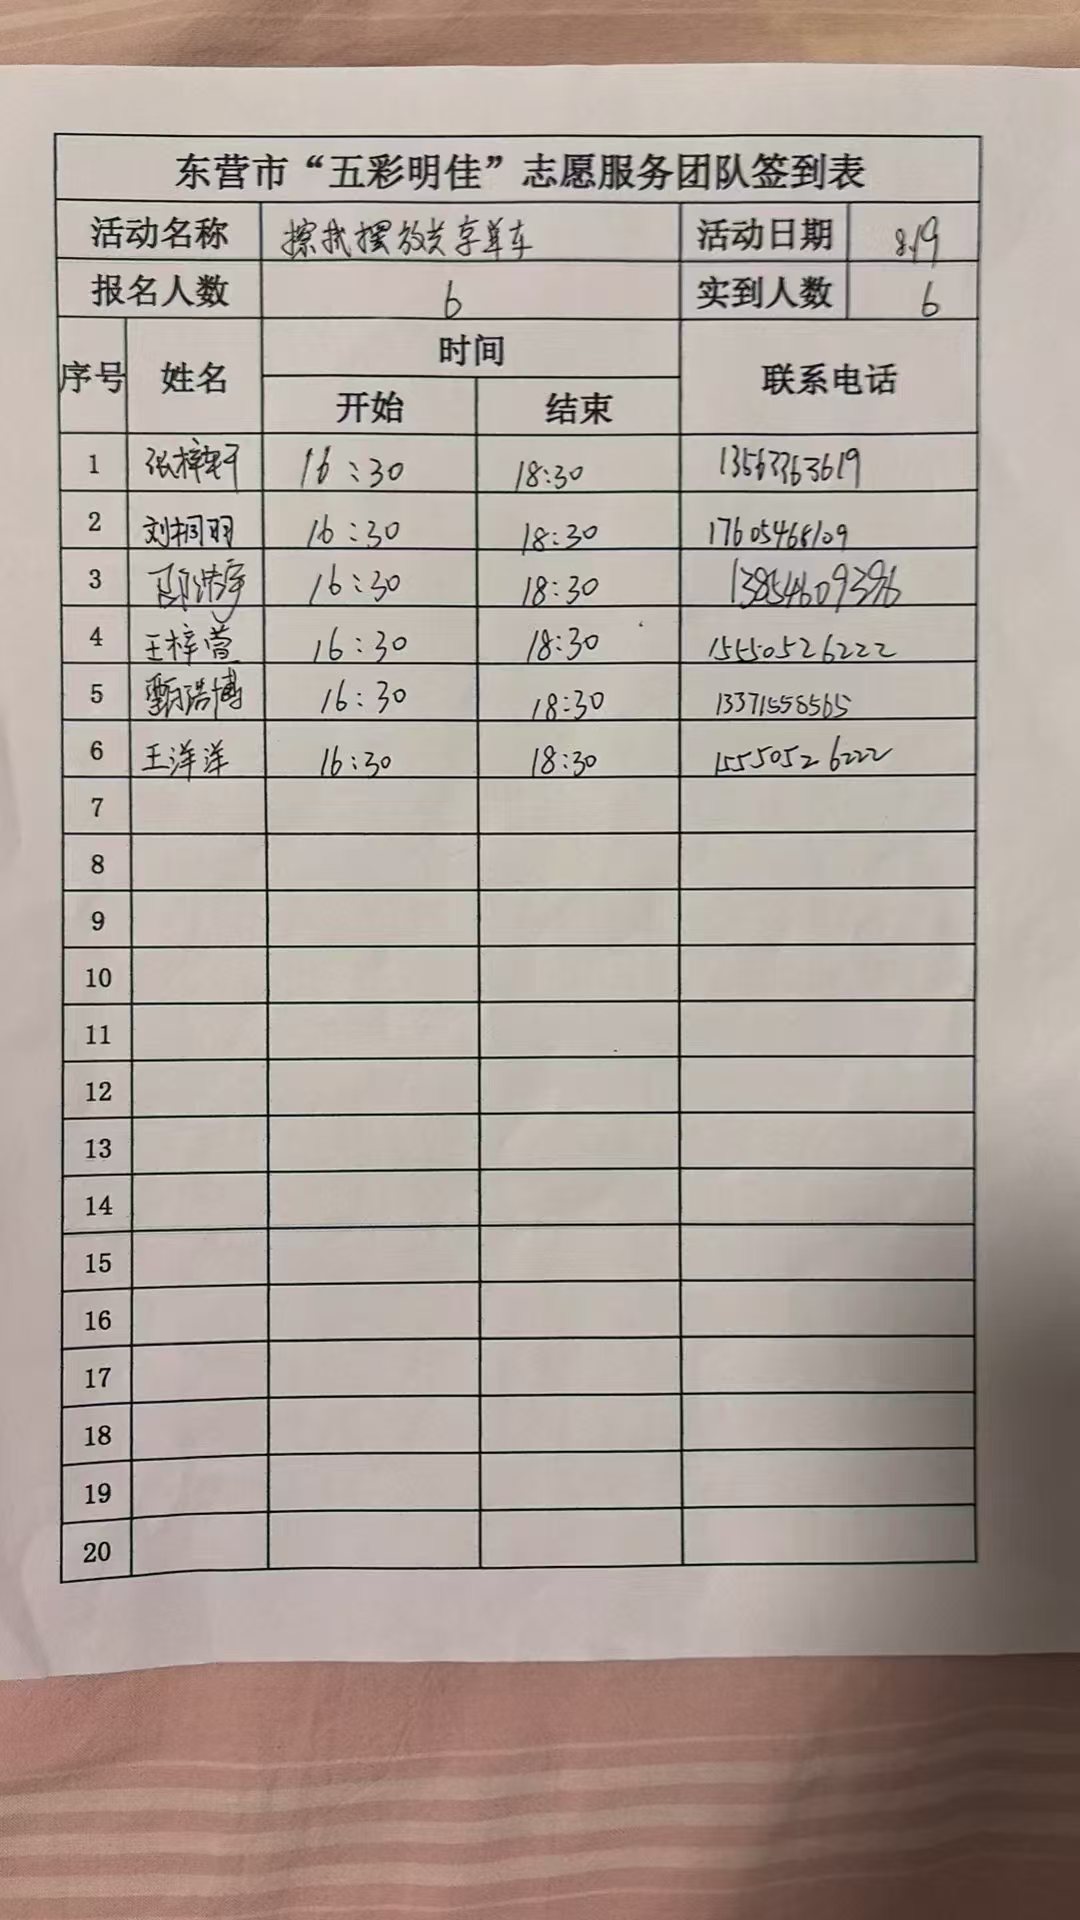 东营市“五彩明佳”志愿服务团队签到表
活动名称 擦拭摆放共享单车 活动日期 8.19
报名人数 6 实到人数 6
序号 姓名 时间 联系电话
开始 结束
1 张梓轩 16:30 18:30 13563363619
2 刘桐羽 16:30 18:30 17605468109
3 16:30 18:30 13854609396
4 王梓萱 16:30 18:30 15550526222
5 甄浩博 16:30 18:30 13371558565
6 王洋洋 16:30 18:30 15550526222
7
8
9
10
11
12
13
14
15
16
17
18
19
20